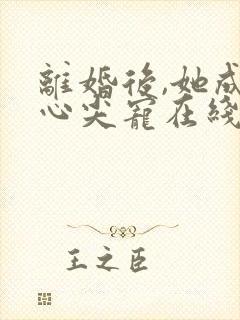 離婚後,她成
心尖寵在綫
王之臣